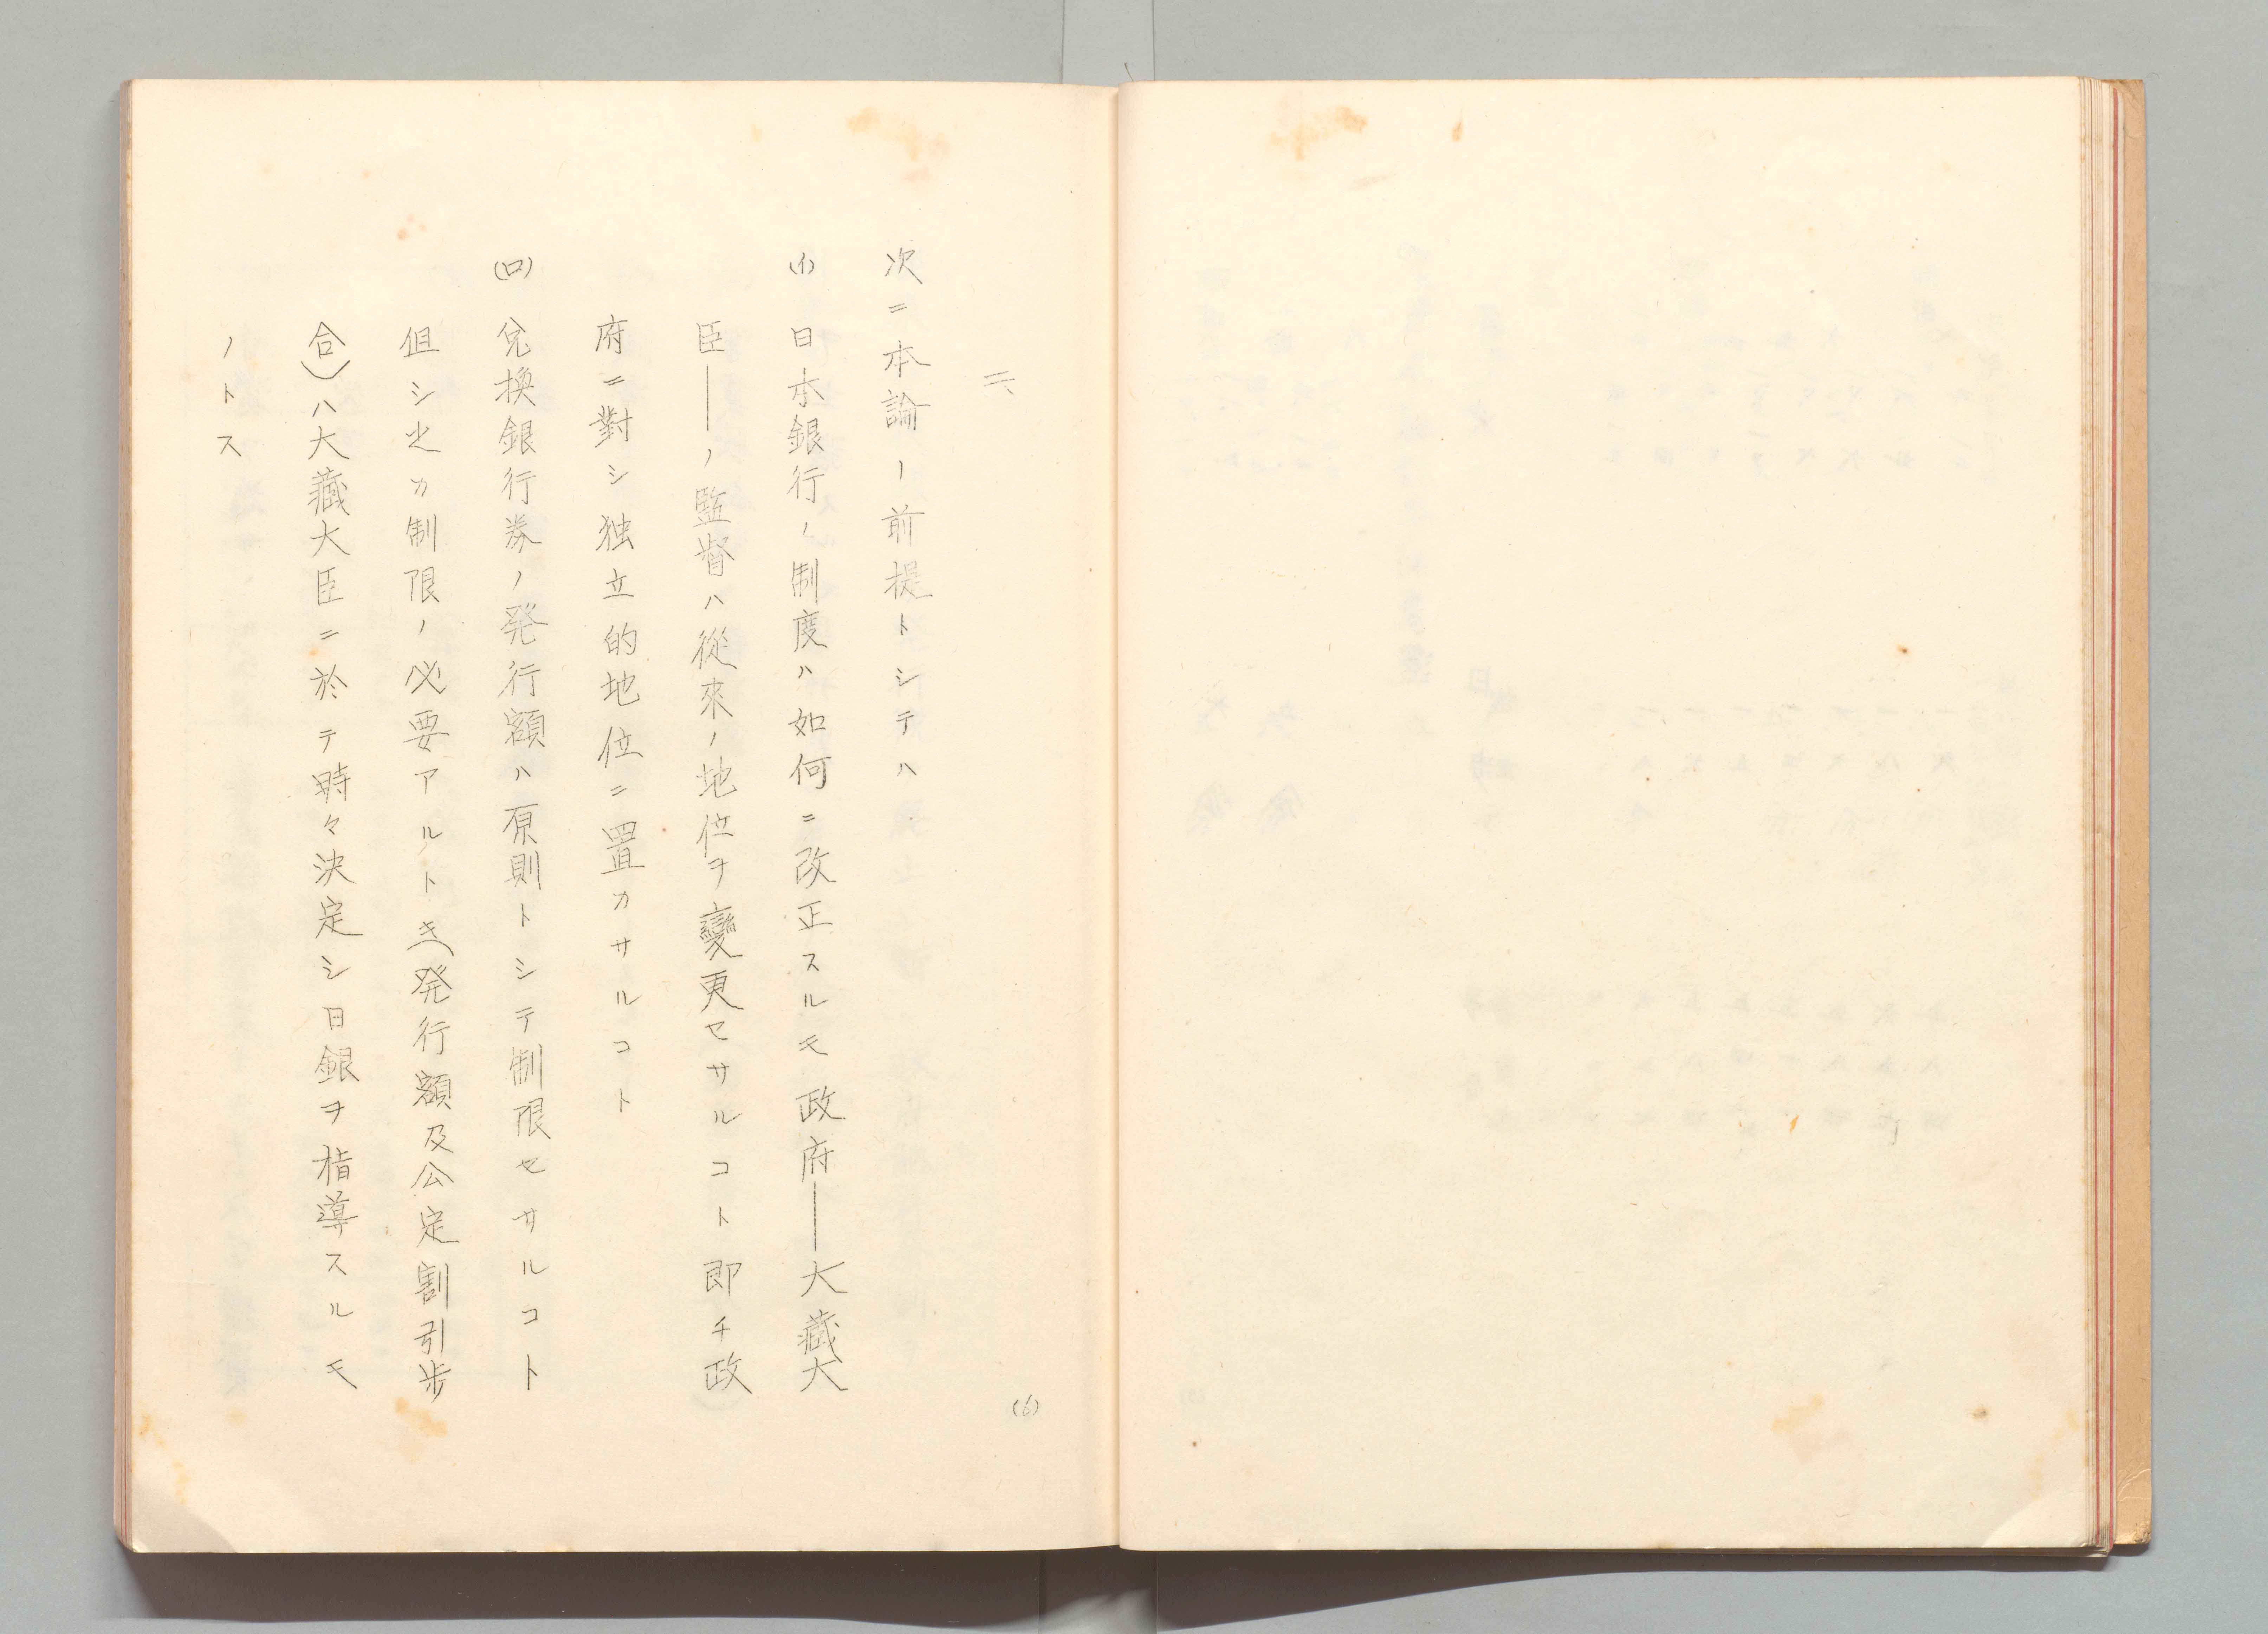 二、
次ニ本論ノ前提トシテハ
(イ) 日本銀行ノ制度ハ如何ニ改正スルモ政府——大藏大
臣——ノ監督ハ從來ノ地位ヲ變更セサルコト即チ政
府ニ對シ独立的地位ニ置カサルコト
(ロ) 兌換銀行券ノ発行額ハ原則トシテ制限セサルコト
但シ之カ制限ノ必要アルトキ(発行額及公定割引歩
合)ハ大藏大臣ニ於テ時々決定シ日銀ヲ指導スルモ
ノトス
(6)